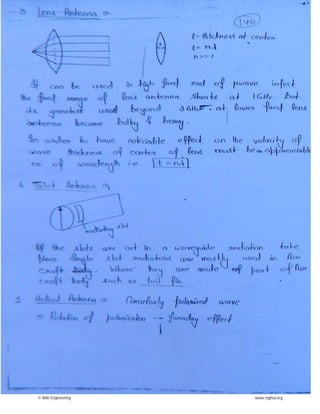 3. Lens Antenna ⇒
140
t - thickness of center
t = nλ
n >> 1
It can be used in high freq. end of μwave infect
the freq range of lens antenna starts at 1GHz. But
its greatest used beyond 3GHz. at lower freq lens
antenna become bulky & heavy.
In order to have noticiable effect on the velocity of
wave thickness of center of lens must be appreciable
no. of wavelength i.e t = nλ
4. Slot Antenna ⇒
radiating slot
If the slots are cut in a waveguide radiation take
place Single slot radiators are mostly used in Air
craft body. Where they are made of part of Air
craft body such as tail fin.
5. Helical Antenna ⇒ Circularly polarised wave
⇒ Rotation of polarisation → faraday effect
© Wiki Engineering www.raghul.org